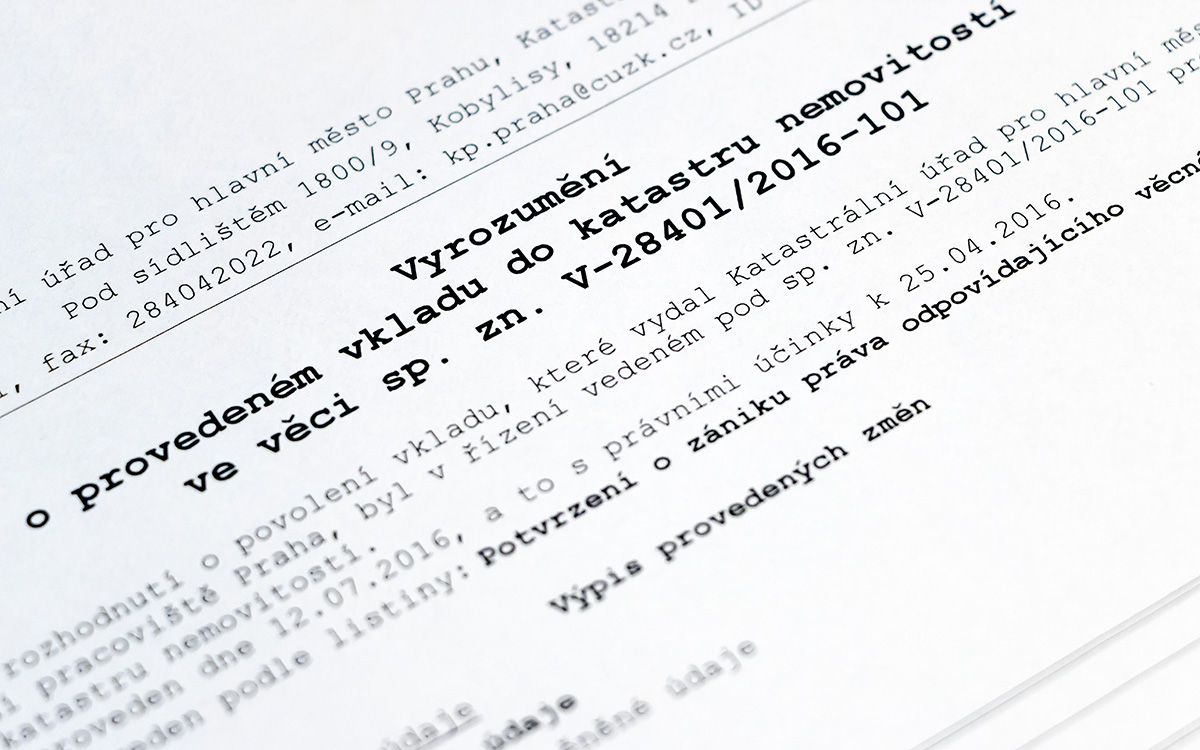 ní úřad pro hlavní město Prahu, Katast
Pod sídlištěm 1800/9, Kobylisy, 18214
, fax: 284042022, e-mail: kp.praha@cuzk.cz, ID
Vyrozumění
o provedeném vkladu do katastru nemovitostí
ve věci sp. zn. V-28401/2016-101
rozhodnutí o povolení vkladu, které vydal Katastrální úřad pro hlavní měs
í pracoviště Praha, byl v řízení vedeném pod sp. zn. V-28401/2016-101 pr
katastru nemovitostí.
proveden dne 12.07.2016, a to s právními účinky k 25.04.2016.
eden podle listiny: Potvrzení o zániku práva odpovídajícího věcné
Výpis provedených změn
údaje
údaje
ěněné údaje